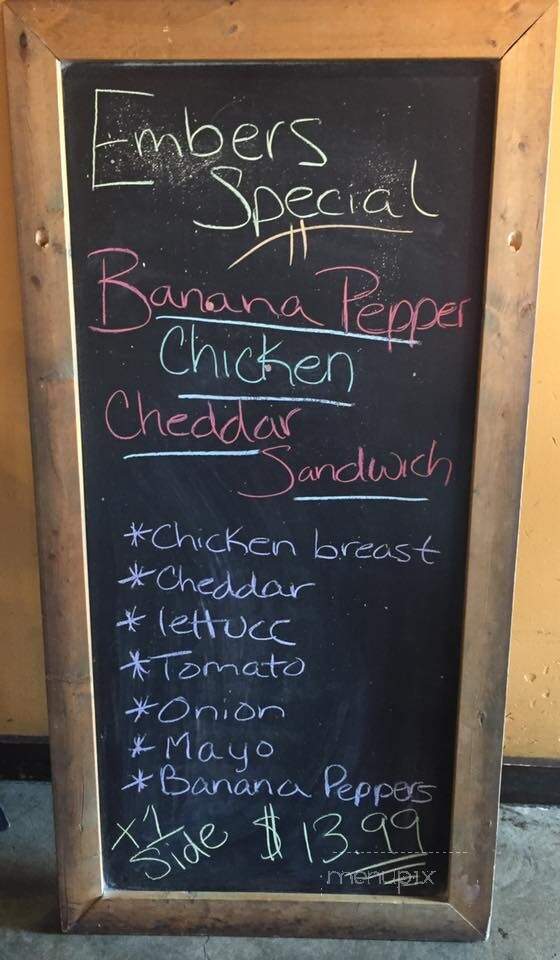 Embers
Special
Banana Pepper
Chicken
Cheddar
Sandwich
*Chicken breast
*Cheddar
*lettucc
*Tomato
*Onion
*Mayo
*Banana Peppers
x1 Side $13.99
menupix